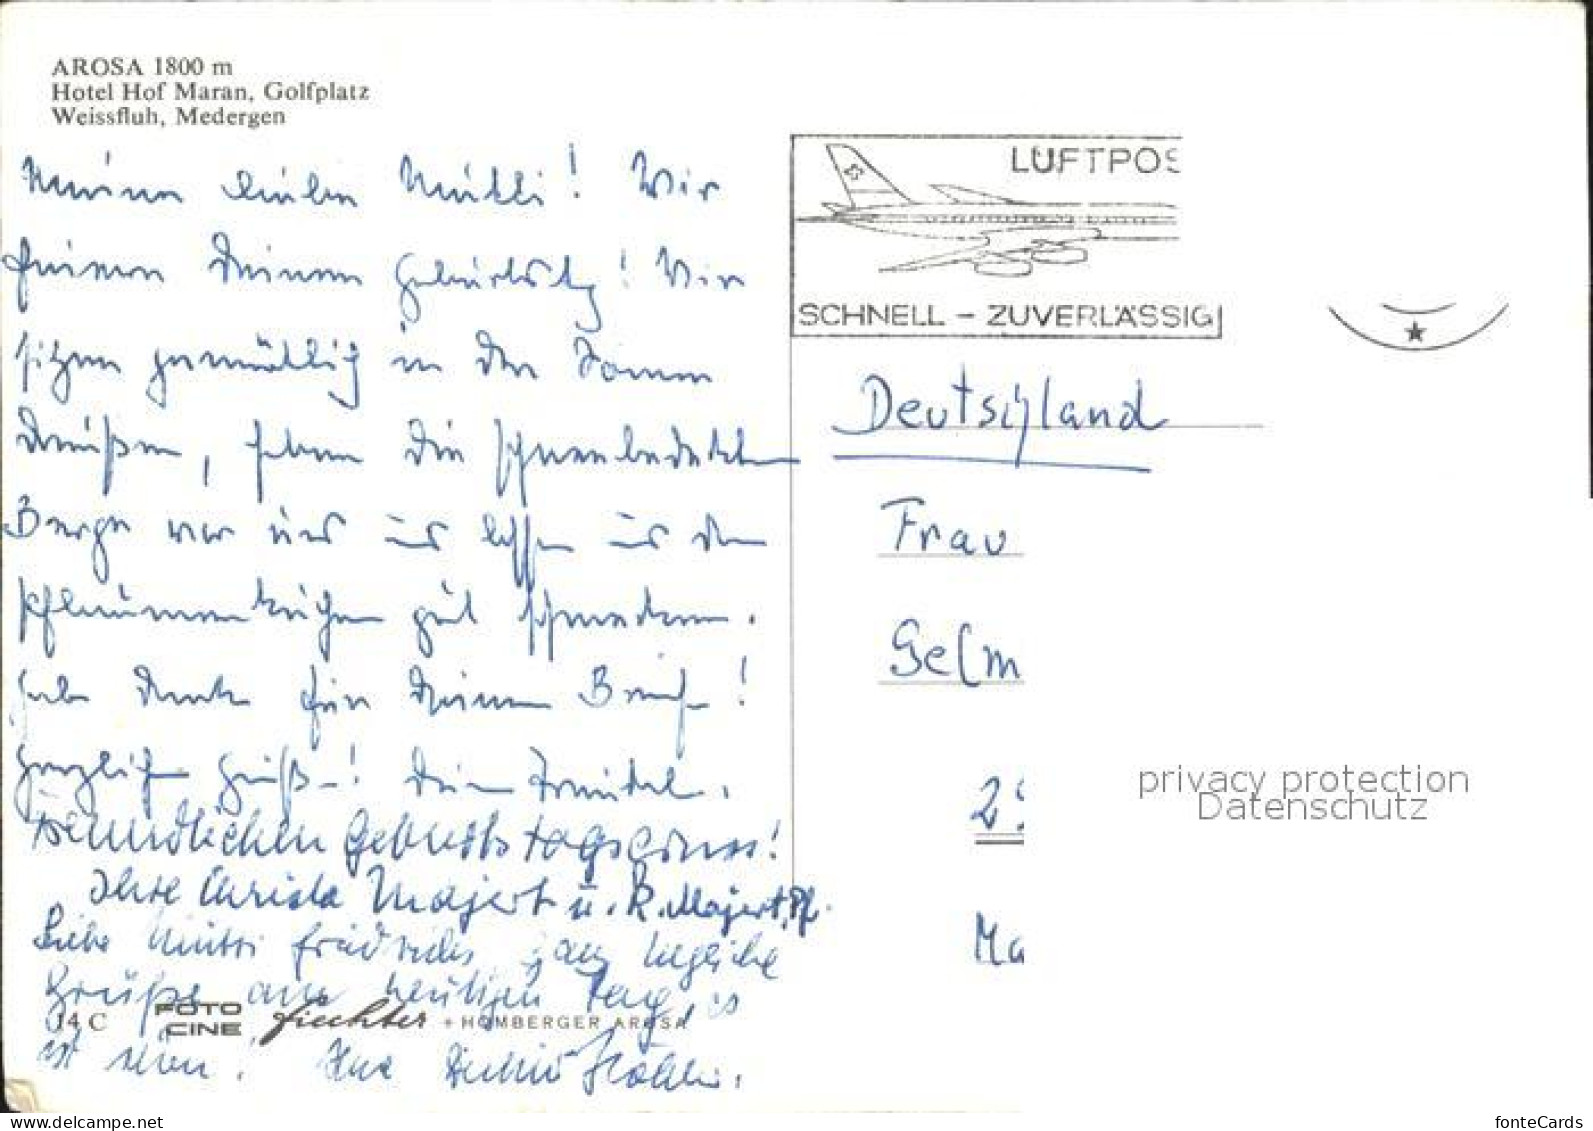 AROSA 1800 m
Hotel Hof Maran, Golfplatz
Weissfluh, Medergen
Meine liebe Mutti! Wir
feiern Deinen Geburtstag! Wir
sitzen gemütlich in der Sonne
draußen, sehen die schneebedeckten
Berge vor uns u. lassen uns den
Pflaumenkuchen gut schmecken.
Hab Dank für Deinen Brief!
Herzliche Grüße! Dein
Geburtstagsgruss!
Ihre Christa Majert u. R. Majert, Pf.
Liebe Mutti ganz
Grüße am heutigen Tag es
ist schön! Ihre
14 C
FOTO
CINE
Fiechter + HOMBERGER AROSA
LUFTPOS
SCHNELL - ZUVERLÄSSIG
Deutschland
Frau
Gelm
Ma
privacy protection
Datenschutz
www.delcampe.net
fonteCards